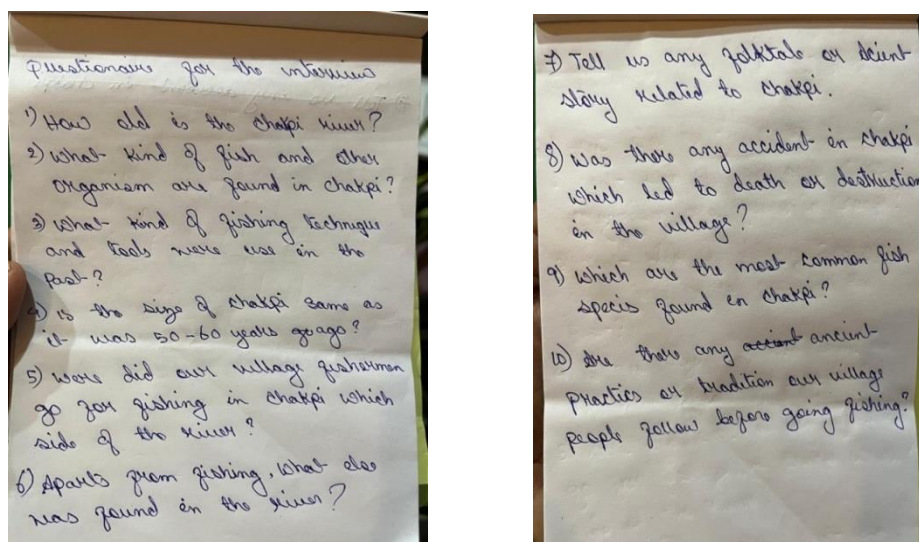 Questionaire for the interview
1) How old is the chakpi river?
2) What kind of fish and other
organism are found in chakpi?
3) What kind of fishing technique
and tools were use in the
past?
4) is the size of chakpi same as
it was 50-60 years ago?
5) Were did our village fisherman
go for fishing in chakpi which
side of the river?
6) Aparts from fishing, what else
was found in the river?
7) Tell us any folktale or
story related to chakpi.
8) Was there any accident in chakpi
which led to death or destruction
in the village?
9) which are the most common fish
specis found in chakpi?
10) Are there any ancient
practics or tradition our village
people follow before going fishing?